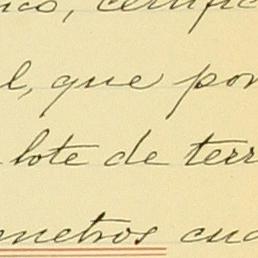 ico, certific
l, que por
lote de terr
metros cua